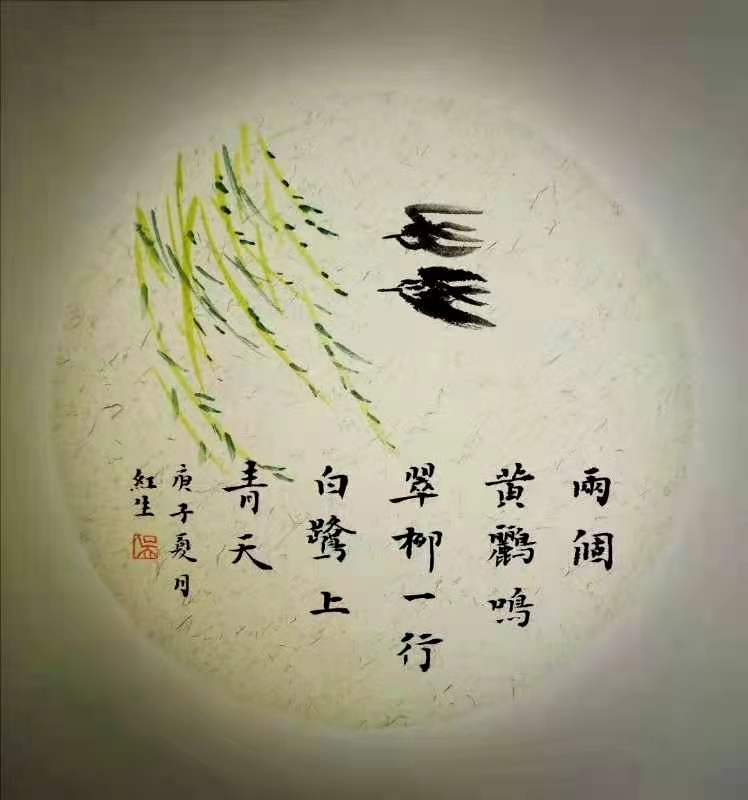 兩個
黄鸝鳴
翠柳一行
白鷺上
青天
庚子夏月
紅生
吴